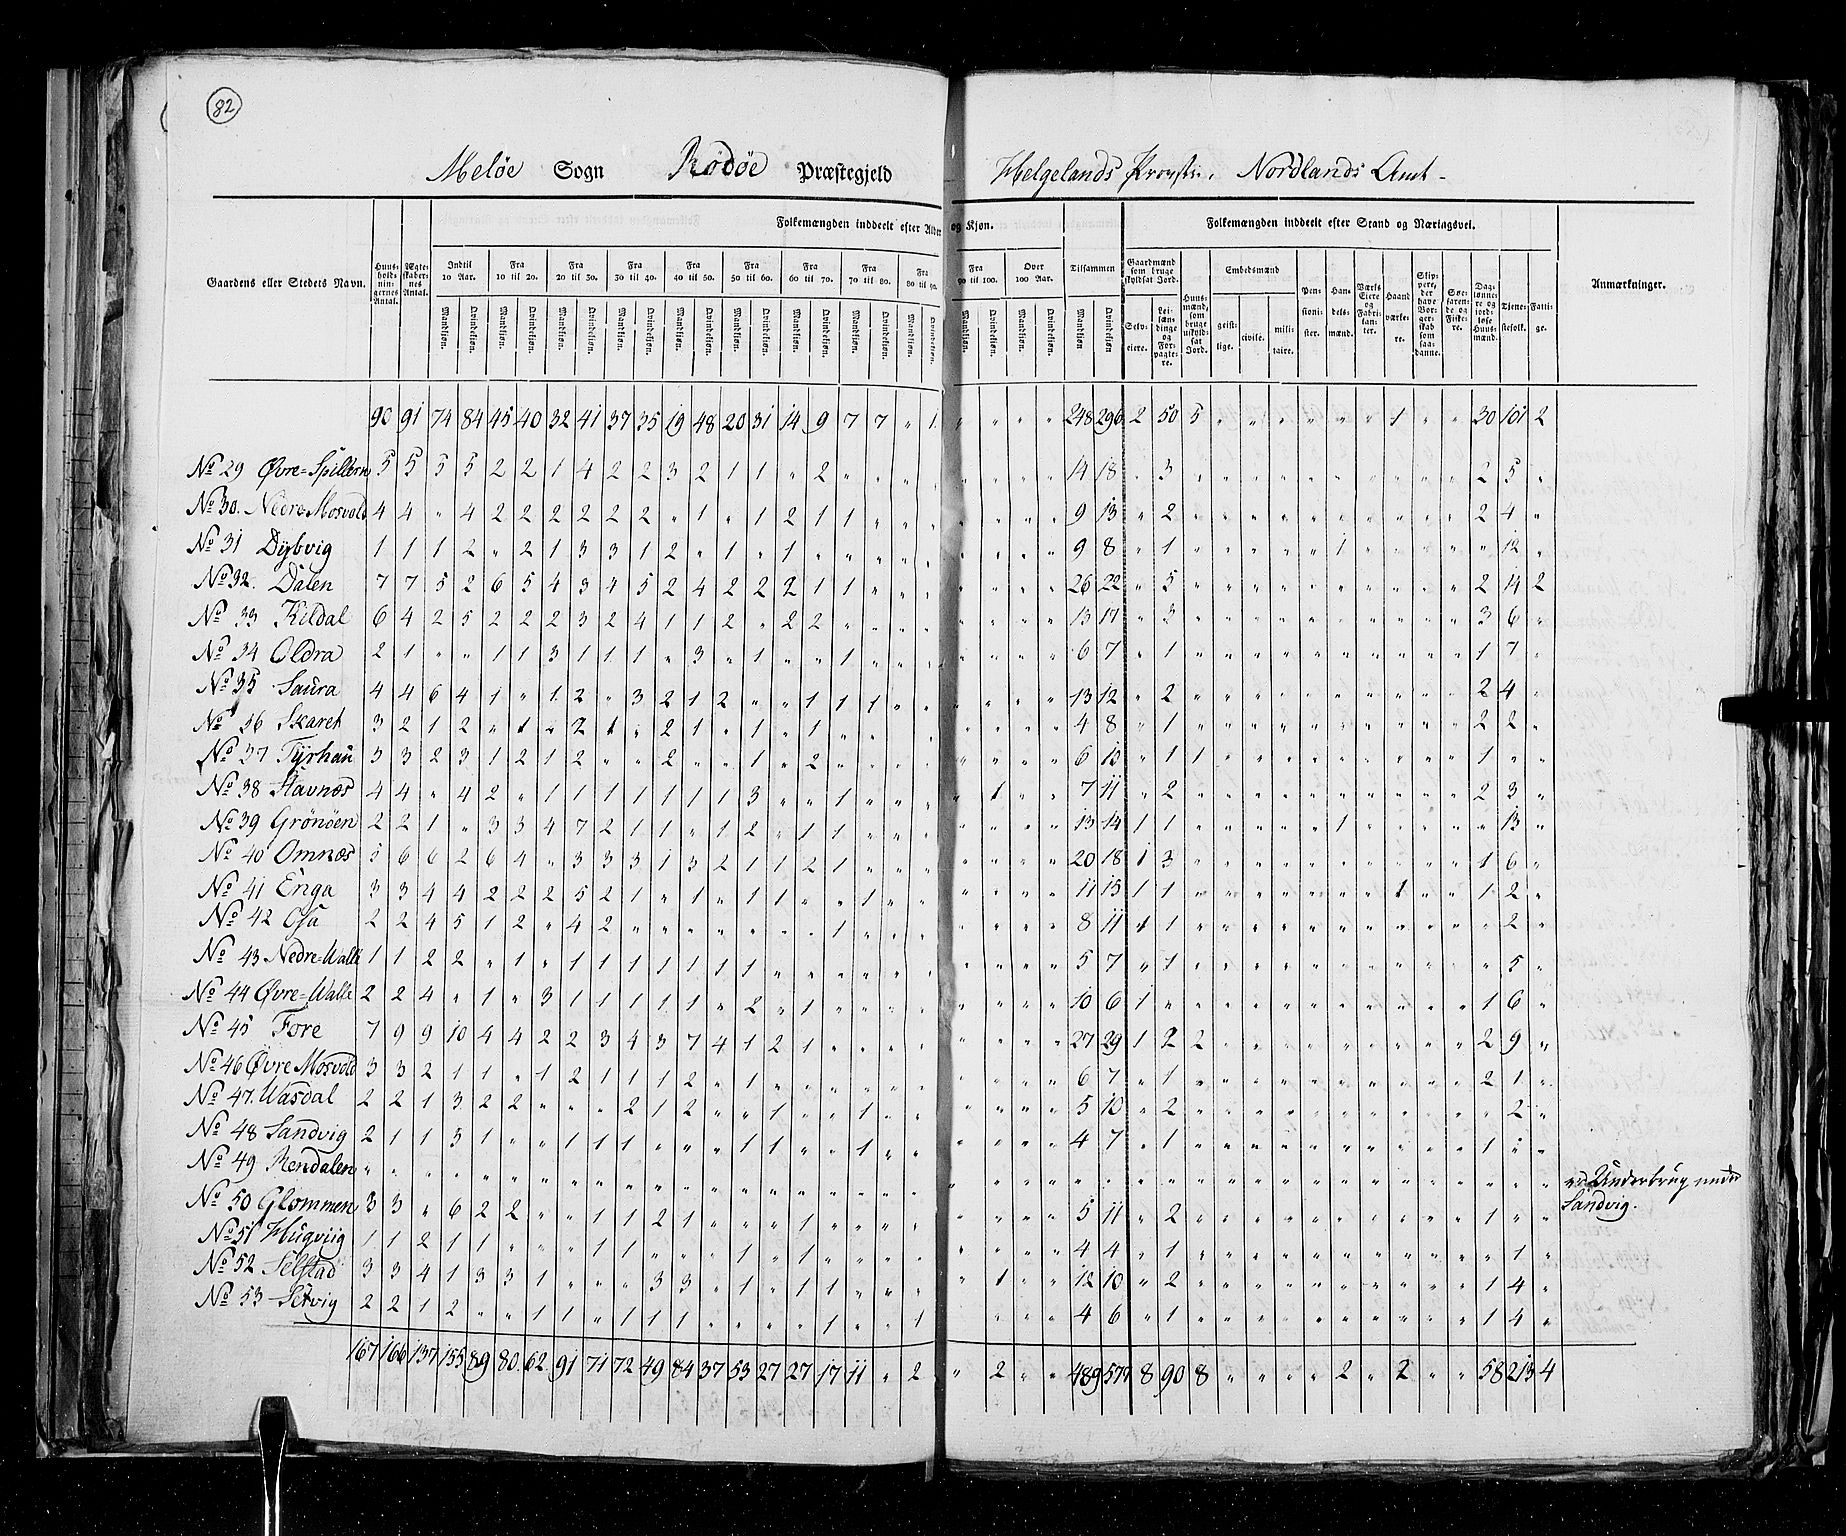 82
Meløe Sogn Rødøe Præstegjeld Helgelands Provsti, Nordlands Amt -
Folkemængden inddeelt efter Alder og Kjøn. Folkemængden inddeelt efter Stand og Næringsvei.
Gaardens eller Stedets Navn. Huus-holdnin-gernes Antal. Ægte-skaber-nes Antal. Indtil 10 Aar. Fra 10 til 20. Fra 20 til 30. Fra 30 til 40. Fra 40 til 50. Fra 50 til 60. Fra 60 til 70. Fra 70 til 80. Fra 80 til 90. Fra 90 til 100. Over 100 Aar. Tilsammen Gaardmænd som bruge skyldsat Jord. Huus-mænd, som bruge uskyld-sat Jord. Embedsmænd Pen-sioni-ster. Han-dels-mænd. Værks Eiere og Fabri-kan-ter. Haand værke-re. Skip-pere, der have Bor-ger-skab som saa-danne. Søe-faren-de og Fiske-re. Dag-lønne-re og jord-løse Huus-mænd. Tjene-stefolk. Fatti-ge. Anmærkninger.
Mandkjøn. Qvindekjøn. Mandkjøn. Qvindekjøn. Mandkjøn. Qvindekjøn. Mandkjøn. Qvindekjøn. Mandkjøn. Qvindekjøn. Mandkjøn. Qvindekjøn. Mandkjøn. Qvindekjøn. Mandkjøn. Qvindekjøn. Mandkjøn. Qvindekjøn. Mandkjøn. Qvindekjøn. Mandkjøn. Qvindekjøn. Mandkjøn. Qvindekjøn. Selv-eiere. Lei-læn-dinge og For-pagte-re. geist-lige. civile. mili-taire.
90 91 74 84 45 40 32 41 37 35 19 48 20 31 14 9 7 7 " 1 " " " " 248 296 2 50 5 " " " " " " 1 " " 30 101 2
No 29 Øvre=Spildern 5 5 5 5 2 2 1 4 2 2 3 2 1 1 " 2 " " " " " " " " 14 18 " 3 " " " " " " " " " " 2 5 "
No 30. Nedre Mosvold 4 4 " 4 2 2 2 2 2 2 " 1 " 1 2 1 1 " " " " " " " 9 13 " 2 " " " " " " " " " " 2 4 "
No 31 Dybvig 1 1 1 2 " 2 1 3 3 1 2 " 1 " 1 " " " " " " " " " 9 8 " 1 " " " " " 1 " " " " " 12 "
No 32. Dalen 7 7 5 2 6 5 4 3 4 5 2 4 2 2 2 1 1 " " " " " " " 26 22 " 5 " " " " " " " " " " 2 14 2
No 33 Kildal 6 4 2 5 2 2 2 3 2 4 1 1 2 " 2 2 " " " " " " " " 13 17 " 3 " " " " " " " " " " 3 6 "
No 34 Oldra 2 1 " " 1 1 3 1 1 1 " 3 " 1 " " 1 " " " " " " " 6 7 " 1 " " " " " " " " " " 1 7 "
No 35 Saura 4 4 6 4 1 " 1 2 " 3 2 1 2 " " 1 1 1 " " " " " " 13 12 " 2 " " " " " " " " " " 2 4 "
No 36 Skaret 3 2 1 2 " 1 " 2 1 " 2 1 " 1 " 1 " " " " " " " " 4 8 " 1 " " " " " " " " " " 2 2 "
No 37 Tyrhau 3 3 2 3 1 2 1 2 " " 2 " " 1 " 2 " " " " " " " " 6 10 " 1 1 " " " " " " " " " 1 " "
No 38 Stavnæs 4 4 " 4 2 " 1 1 1 1 1 1 1 3 " " 1 " " " " 1 " " 7 11 " 2 " " " " " " " " " " 2 3 "
No 39 Grönöen 2 2 1 " 3 3 4 7 2 1 1 " 1 2 " 1 1 " " " " " " " 13 14 1 1 " " " " " 1 " " " " " 13 "
No 40 Omnæs 5 6 6 2 6 4 " 3 3 3 1 3 2 1 1 2 1 " " " " " " " 20 18 1 3 " " " " " " " " " " 1 6 "
No 41 Enga 3 3 4 4 2 2 2 5 2 1 " 1 " 1 1 " " 1 " " " " " " 11 15 1 1 " " " " " " " 1 " " 1 2 "
No 42 Osa 2 2 4 5 1 2 " 4 2 " " " " " " " 1 " " " " " " " 8 11 1 1 " " " " " " " " " " " 2 "
No 43 Nedre=Walle 1 1 2 2 " 1 " 1 1 1 1 1 1 1 " " " " " " " " " " 5 7 " 1 " " " " " " " " " " " 5 "
No 44 Øvre=Walle 2 2 4 " 1 " 3 1 1 1 1 1 " 2 " 1 " " " " " " " " 10 6 1 " " " " " " " " " " " 1 6 "
No 45 Fore 7 9 9 10 4 4 2 2 3 4 3 7 4 1 2 1 " " " " " " " " 27 29 1 2 2 " " " " " " " " " 2 9 "
No 46 Øvre Mosvold 3 3 2 1 1 " 1 2 1 1 1 2 " 1 " " " " " " " " " " 6 7 " 1 " " " " " " " " " " 2 1 "
No 47. Wasdal 2 2 1 3 2 2 " " " 2 1 2 " " 1 " " 1 " " " " " " 5 10 " 2 " " " " " " " " " " " 2 "
No 48 Sandvig 2 1 1 3 1 " " 1 1 1 " " " 1 1 " " 1 " " " " " " 4 7 " 1 " " " " " " " " " " 1 " "
No 49 Rendalen " " " " " " " " " " " " " " " " " " " " " " " " " " " " " " " " " " " " " " " " " Underbrug under
Sandvig.
No 50 Glommen 3 3 " 6 2 2 " " 1 1 2 1 " " " 1 " " " " " " " " 5 11 " 2 " " " " " " " " " " 1 " "
No 51 Hugviig 1 1 2 1 1 " " " 1 1 " " " 1 " 1 " " " " " " " " 4 4 " 1 " " " " " " " " " " " 1 "
No 52 Selstad 3 3 4 1 3 3 1 " " " 3 3 " 1 " 1 1 " " " " 1 " " 12 10 " 2 " " " " " " " " " " 1 4 "
No 53 Setvig 2 2 1 2 " " 1 1 " 1 1 1 " " " " 1 " " 1 " " " " 4 6 " 1 " " " " " " " " " " 1 4 "
167 166 137 155 89 80 62 91 71 72 49 84 37 53 27 27 17 11 " 2 " 2 " " 489 577 8 90 8 " " " " 2 " 2 " " 58 213 4